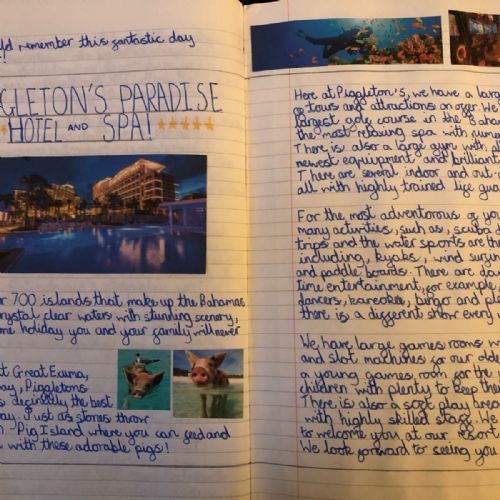 remember this fantastic day
GLETON'S PARADISE
HOTEL AND SPA!
700 islands that make up the Bahamas
crystal clear waters with stunning scenery,
holiday you and your family will never
Great Exuma,
Piggletons
decidedly the best
Just a stones throw
Pig Island where you can feed and
with these adorable pigs!
Here at Piggleton's, we have a larg
tours and attractions on offer. We
largest golf course in the Baham
the most relaxing spa with
There is also a large gym with all
newest equipment and brilliant
There are several indoor and out-
all with highly trained life gua
For the most adventorous of yo
many activities, such as, scuba d
trips and the water sports are the
including, kyaks, wind surfin
and paddle boards. There are
time entertainment, for example,
dancers, kareokee, bingo and ple
there is a different show every
We have large games rooms
and slot machines for our old
a young games room for the
children with plenty to keep the
There is also a soft play area
with highly skilled staff. We
to welcome you at our resort
We look forward to seeing you